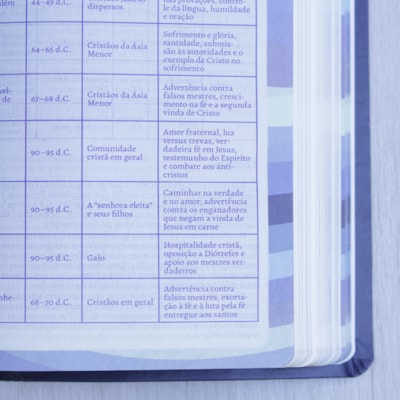 além
44–49 d.C.
dispersos
nas provações, contro-
le da língua, humildade
e oração
64–65 d.C.
Cristãos da Ásia
Menor
Sofrimento e glória,
santidade, submis-
são às autoridades e o
exemplo de Cristo no
sofrimento
vel-
de
67–68 d.C.
Cristãos da Ásia
Menor
Advertência contra
falsos mestres, cresci-
mento na fé e a segunda
vinda de Cristo
90–95 d.C.
Comunidade
cristã em geral
Amor fraternal, luz
versus trevas, ver-
dadeira fé em Jesus,
testemunho do Espírito
e combate aos anti-
cristos
90–95 d.C.
A "senhora eleita"
e seus filhos
Caminhar na verdade
e no amor; advertência
contra os enganadores
que negam a vinda de
Jesus em carne
90–95 d.C.
Gaio
Hospitalidade cristã,
oposição a Diótrefes e
apoio aos mestres ver-
dadeiros
nhe-
68–70 d.C.
Cristãos em geral
Advertência contra
falsos mestres, exorta-
ção à fé e à luta pela fé
entregue aos santos